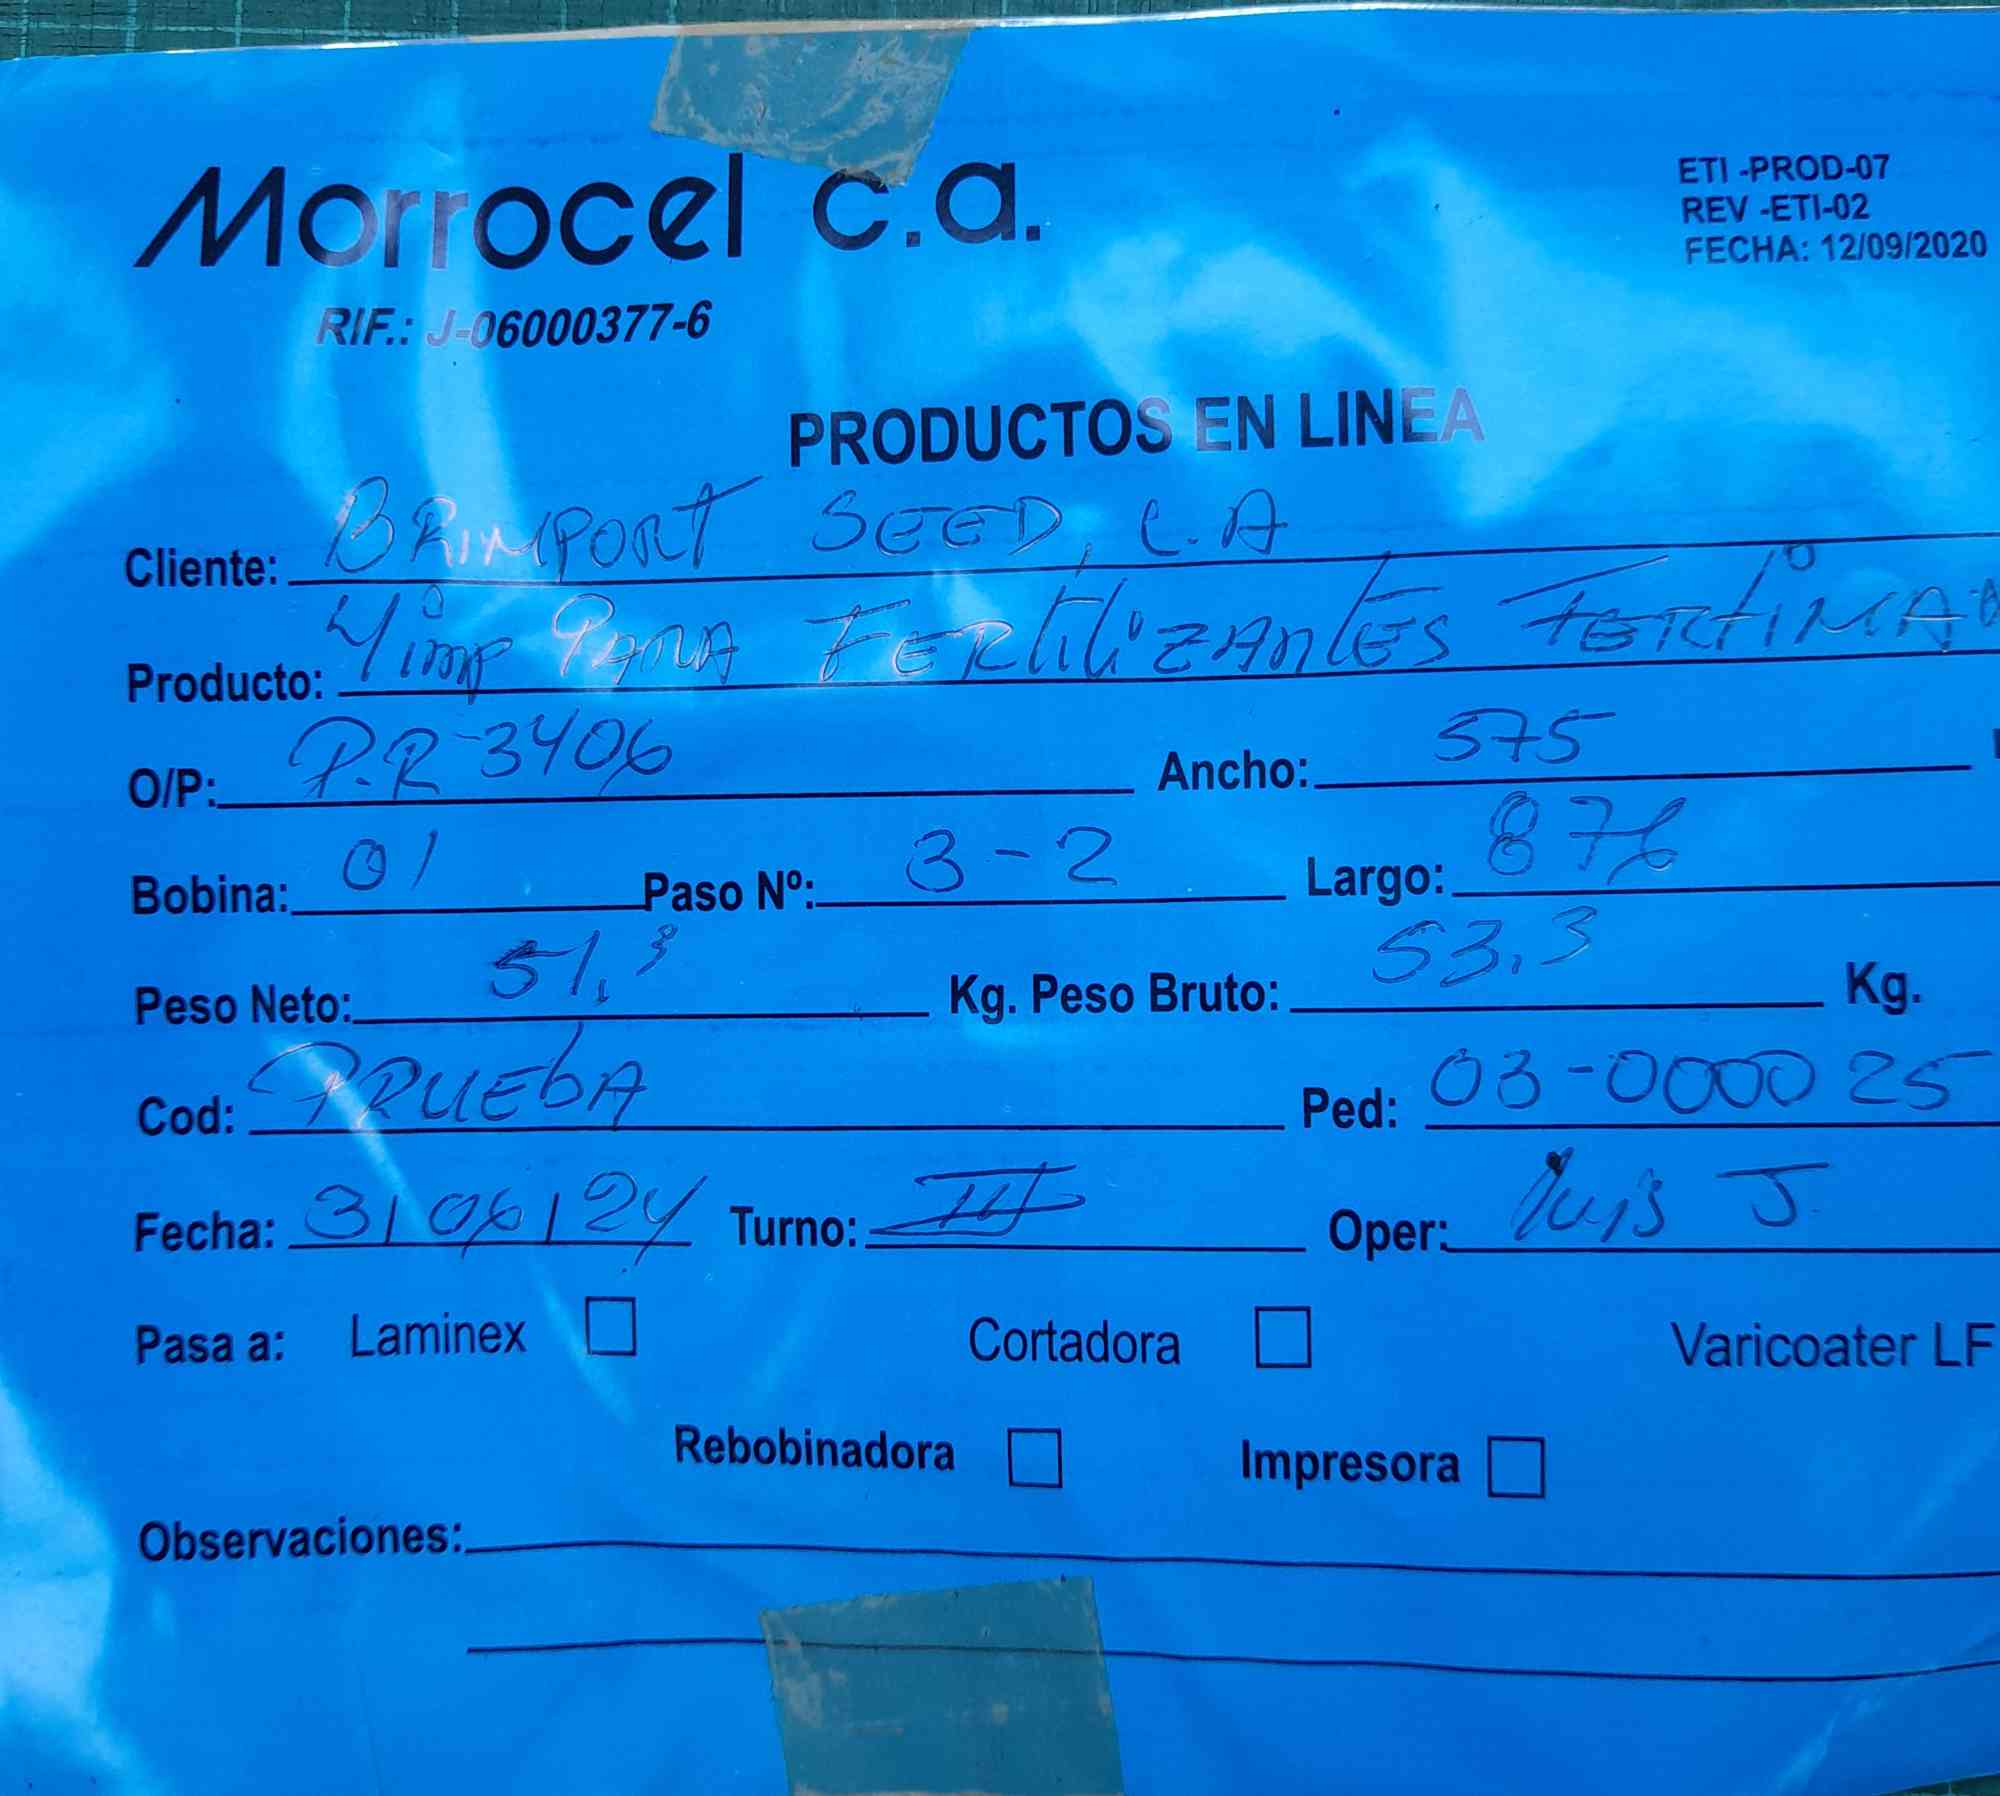 Morrocel c.a.
RIF.: J-06000377-6
ETI -PROD-07
REV -ETI-02
FECHA: 12/09/2020
PRODUCTOS EN LINEA
Cliente: BRIMPORT SEED, C.A
Producto: 4 imp PARA FERtiliZANtES FERtiMA
O/P: P.R-3406 Ancho: 575
Bobina: 01 Paso Nº: 3-2 Largo: 876
Peso Neto: 51,3 Kg. Peso Bruto: 53,3 Kg.
Cod: PRUEbA Ped: 03-0000025
Fecha: 31 06 24 Turno: III Oper: Luis J.
Pasa a: Laminex Cortadora Varicoater LF
Rebobinadora Impresora
Observaciones: